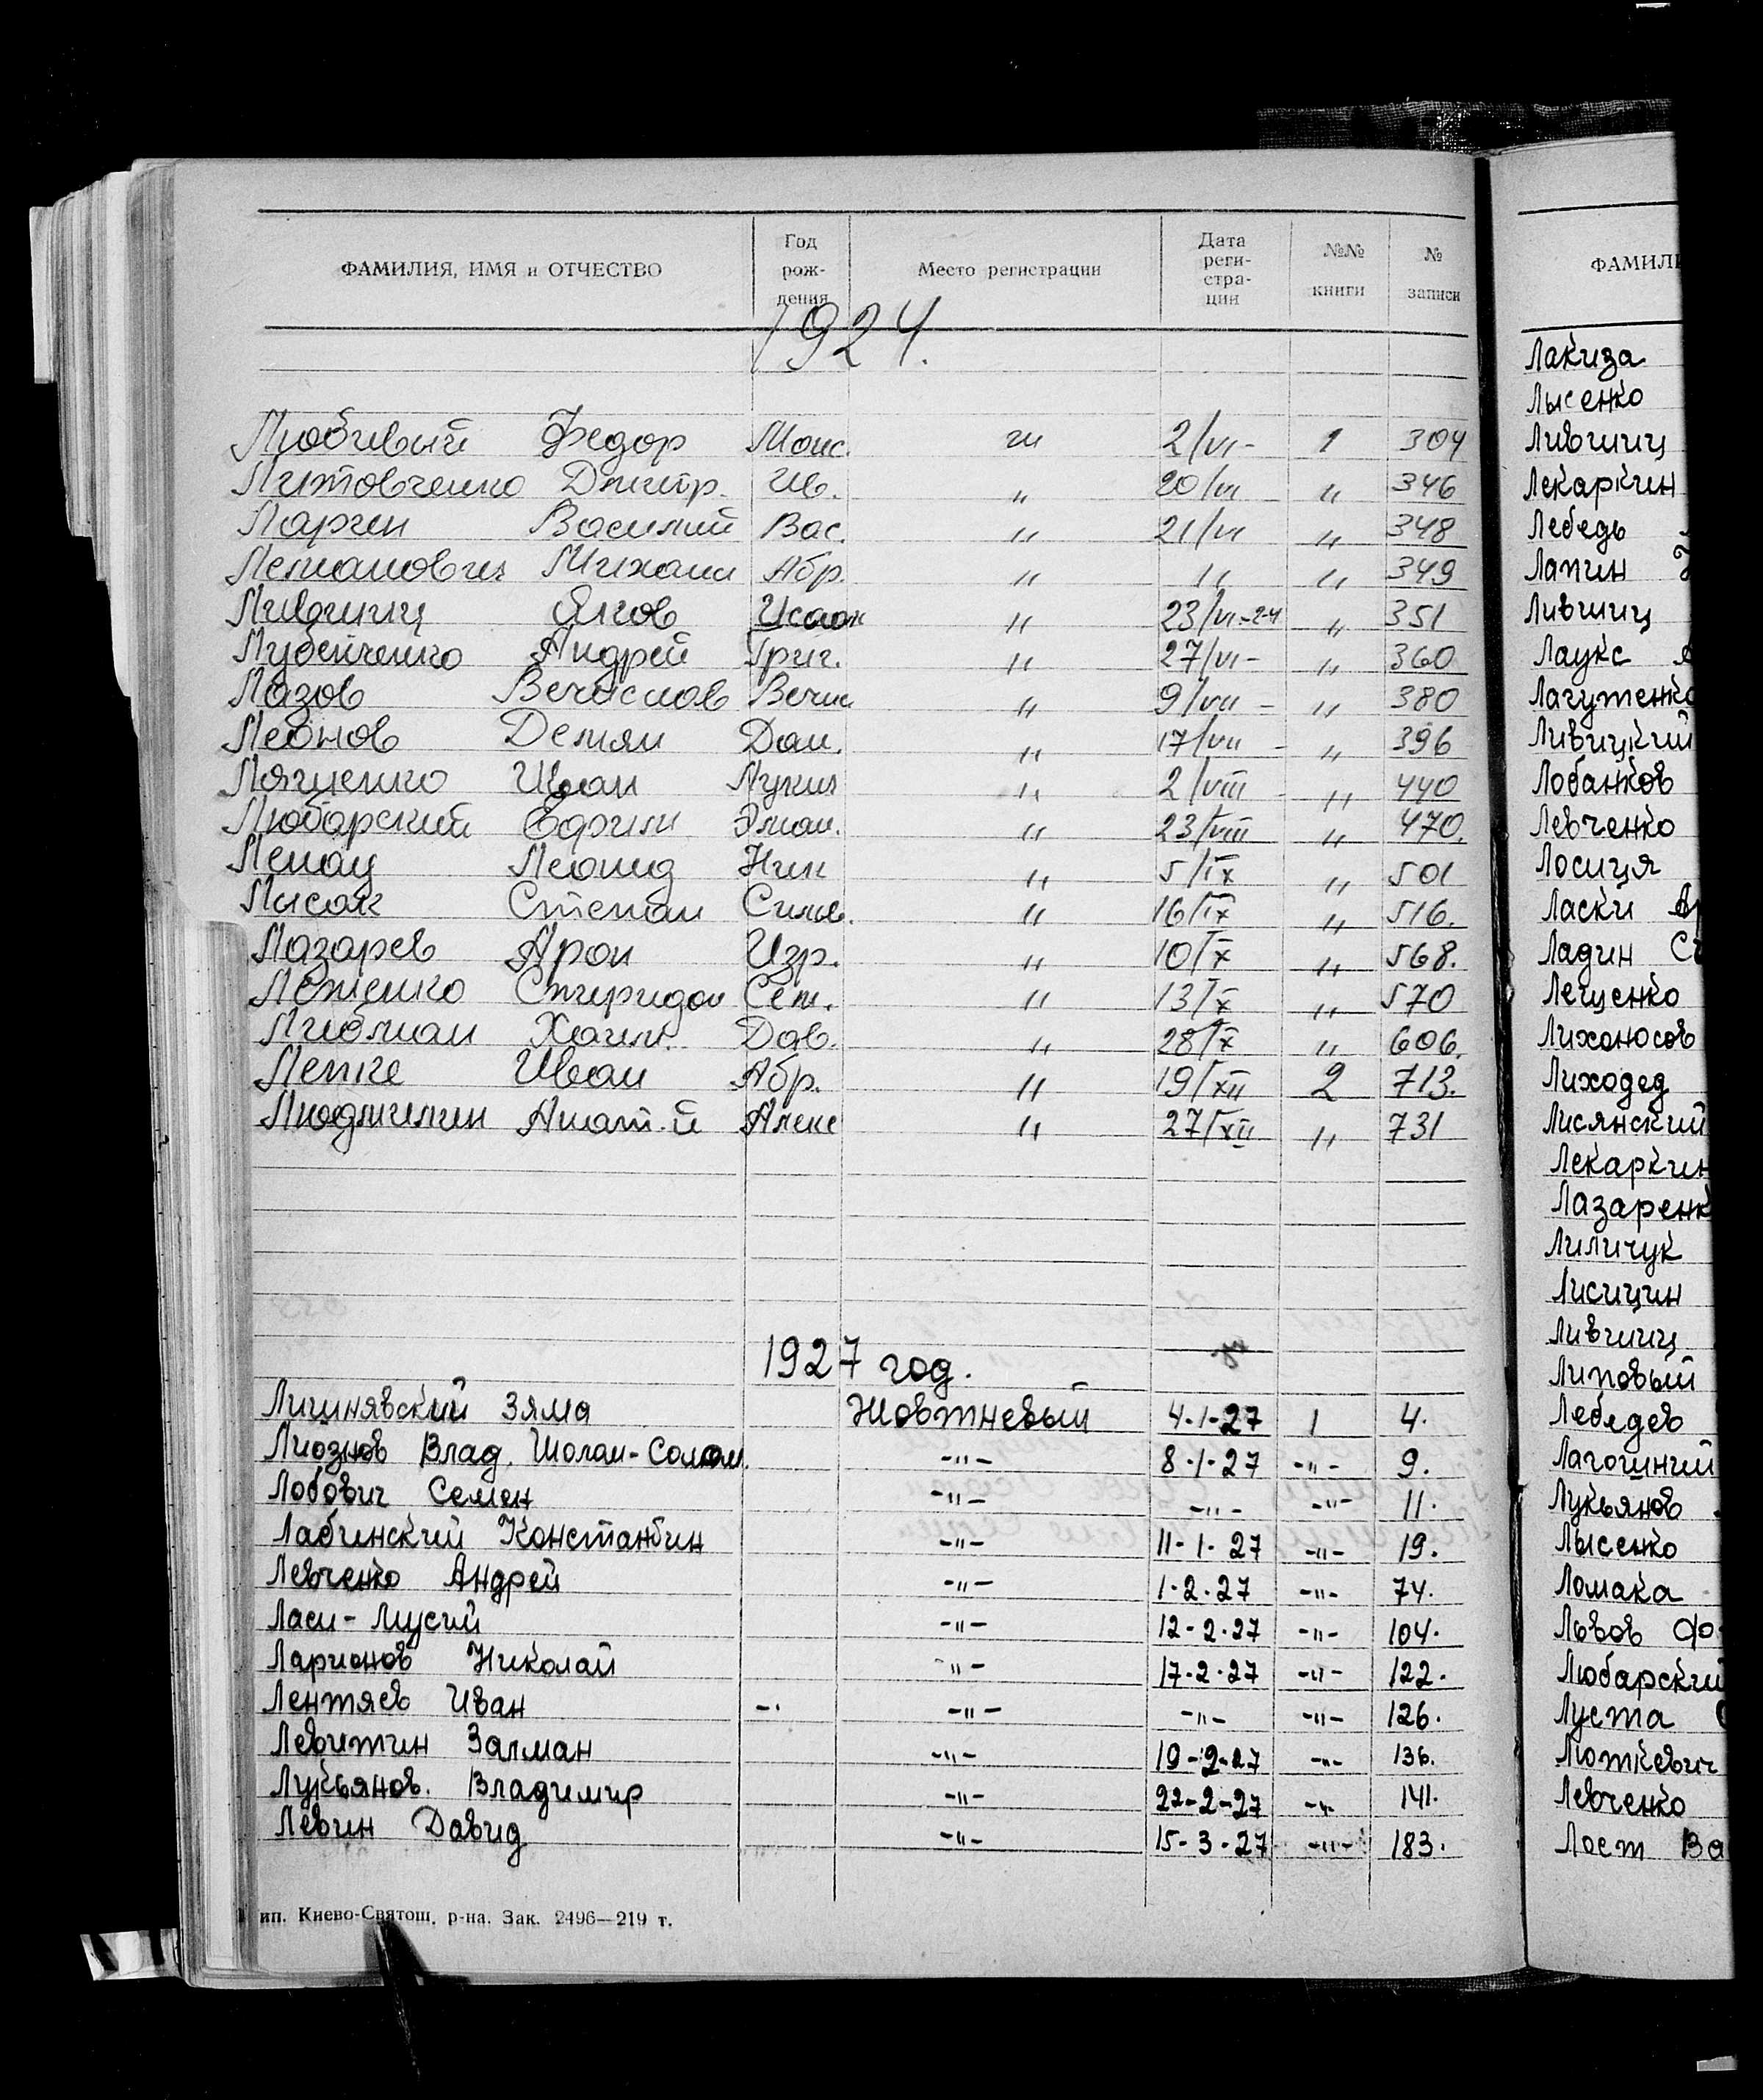 ФАМИЛИЯ, ИМЯ и ОТЧЕСТВО Год рож-дения Место регистрации Дата реги-стра-ции №№ книги № записи
1924.
Любивый Федор Моис. 2/VI- 1 304
Литовченко Дмитр. Ив. " 20/VI " 346
Ларчен Василий Вас. " 21/VI " 348
Леманович Михаил Абр. " " " 349
Лившиц Яков Исаак " 23/VI-24 " 351
Лубенченко Андрей Григ. " 27/VI- " 360
Лазов Вечаслов Вечис " 9/VII - " 380
Леонов Демян Дан. " 17/VII - " 396
Лященко Иван Лукич " 2/VIII - " 440
Любарский Ефрим Эман. " 23/VIII " 470.
Леонид Ник " 5/IX " 501
Лысак Степан Сильв. " 16/IX " 516.
Лазарев Арон Изр. " 10/X " 568.
Спиридон Сем. " 13/X " 570
Либман Хаим. Дав. " 28/X " 606.
Лепке Иван Абр. " 19/XII 2 713.
Людмилин Анат-й Алекс " 27/XII " 731
1927 год.
Лишнявский Зяма Жовтневый 4-1-27 1 4.
Лиознов Влад. Шолом-Солом. -"- 8-1-27 -"- 9.
Лобович Семен -"- -"- -"- 11.
Лабинский Константин -"- 11-1-27 -"- 19.
Левченко Андрей -"- 1-2-27 -"- 74.
Ласи-Мусий -"- 12-2-27 -"- 104.
Ларионов Николай -"- 17-2-27 -"- 122.
Лентяев Иван -. -"- -"- -"- 126.
Левитин Залман -"- 19-2-27 -"- 136.
Лукьянов. Владимир -"- 22-2-27 -"- 141.
Левин Давид -"- 15-3-27 -"- 183.
ип. Киево-Святош. р-на. Зак. 2496—219 т.
ФАМИЛИ
Лакиза
Лысенко
Лившиц
Лекаркин
Лебедь
Лапин
Лившиц
Лаукс
Лагутенко
Ливицкий
Лобанков
Левченко
Лосиця
Ласки
Ладин
Лещенко
Лихоносов
Лиходед
Лисянский
Лекаркин
Лазаренк
Лиличук
Лисицин
Лившиц
Липовый
Лебедев
Лагошний
Лукьянов
Лысенко
Ломака
Львов Фо
Любарский
Луста
Лоткевич
Левченко
Лост Ва